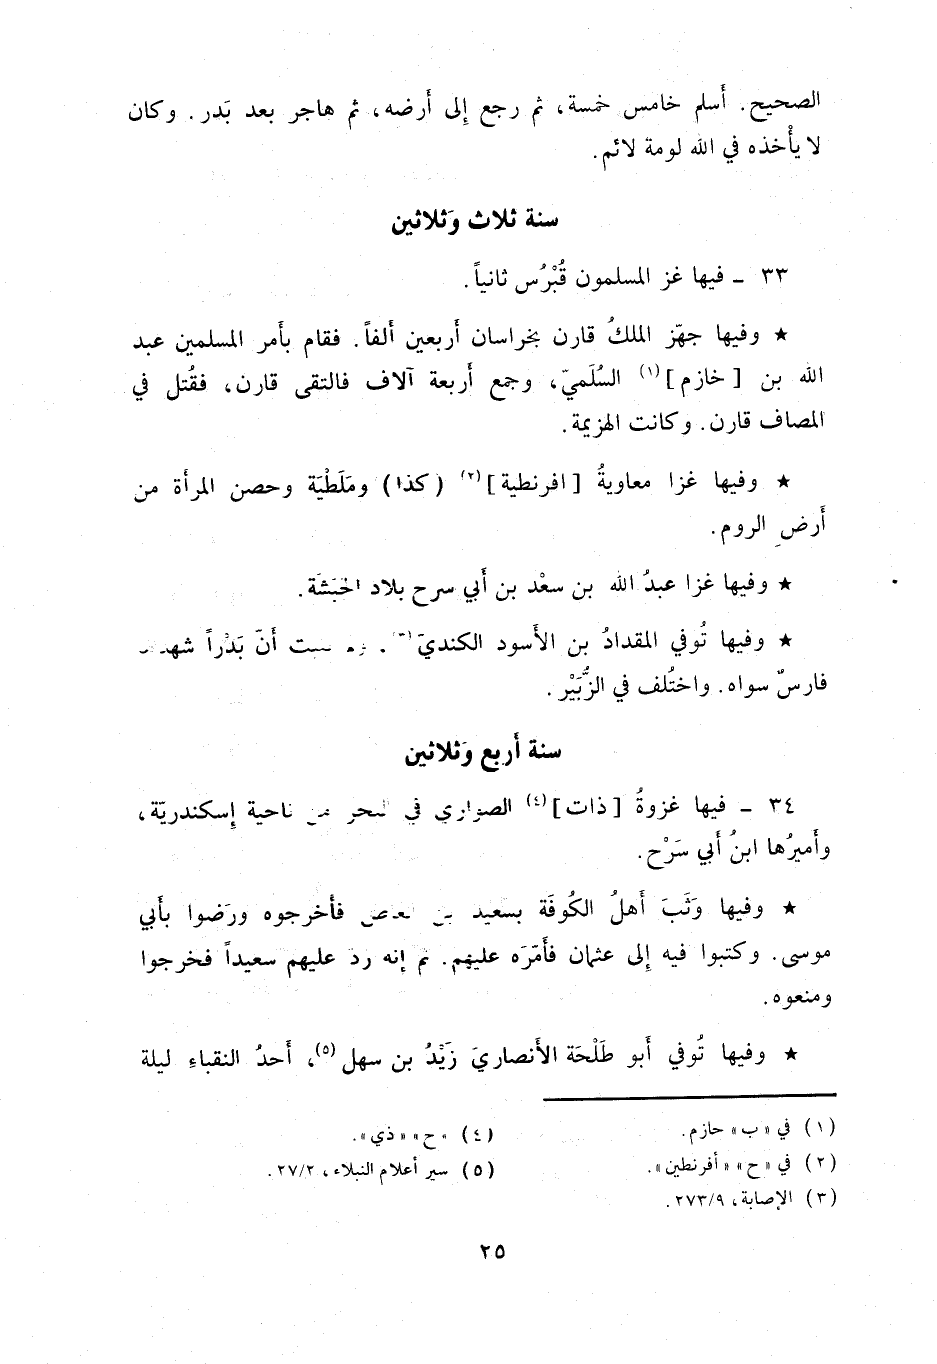 الصحيح. أَسلم خامس خمسة، ثم رجع إِلى أَرضه، ثم هاجر بعد بَدر. وكان
لا يأْخذه في الله لومة لائم.
سنة ثلاث وَثلاثين
٣٣ ـ فيها غز المسلمون قُبْرُس ثانياً.
★ وفيها جهّز الملكُ قارن بخراسان أَربعين أَلفاً. فقام بأَمر المسلمين عبد
الله بن [خازم](١) السُلَميّ، وجمع أَربعة آلاف فالتقى قارن، فقُتل في
المصاف قارن. وكانت الهزيمة.
★ وفيها غزا معاويةُ [افرنطية](٢) (كذا) ومَلَطْيَة وحصن المرأة من
أَرض الروم.
★ وفيها غزا عبدُ الله بن سعْد بن أَبي سرح بلاد الحَبَشَة.
★ وفيها تُوفي المقدادُ بن الأَسود الكنديَ . أَنّ بَدْراً
فارسٌ سواه. واختُلف في الزُّبَيْر.
سنة أَربع وَثلاثين
٣٤ ـ فيها غزوةُ [ذات](٤) الصواري في البحر من ناحية إِسكندريّة،
وأَميرُها ابنُ أَبي سَرْح.
★ وفيها وَثَبَ أَهلُ الكُوفَة بسعيد بن العاص فأخرجوه ورَضوا بأَبي
موسى. وكتبوا فيه إِلى عثمان فأَمّرَه عليهم. ثم إنه رد عليهم سعيداً فخرجوا
ومنعوه.
★ وفيها تُوفي أَبو طَلْحَة الأَنصاريَ زَيْدُ بن سهل(٥)، أَحدُ النقباءِ ليلة
(١) في «ب» حازم.
(٢) في «ح» «أفرنطين».
(٣) الإصابة، ٢٧٣/٩.
(٤) «ح» «ذي».
(٥) سير أعلام النبلاء، ٢٧/٢.
٢٥